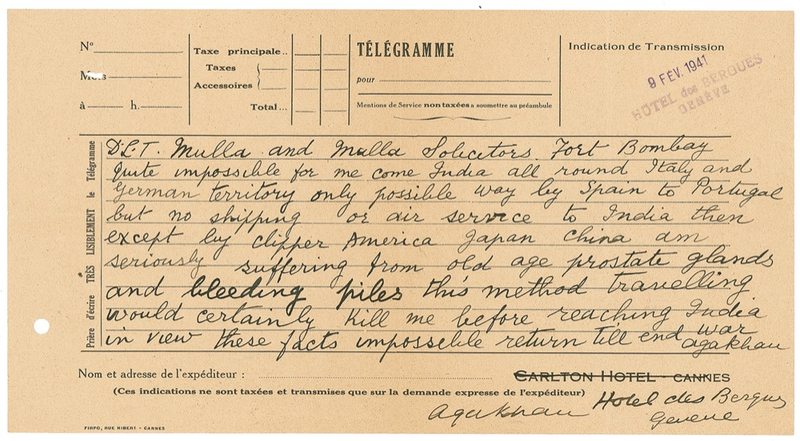 N°
Mots
à h.
Taxe principale..
Taxes
Accessoires
Total...
TÉLÉGRAMME
pour
Mentions de Service non taxées a soumettre au préambule
Indication de Transmission
9 FÉV. 1941
HÔTEL des BERGUES
GENÈVE
Prière d'écrire TRÈS LISIBLEMENT le Télégramme
D.L.T. Mulla and Mulla Solicitors Fort Bombay
Quite impossible for me come India all round Italy and
German territory only possible way by Spain to Portugal
but no shipping or air service to India then
except by clipper America Japan China am
seriously suffering from old age prostate glands
and bleeding piles this method travelling
would certainly kill me before reaching India
in view these facts impossible return till end war
agakhan
Nom et adresse de l'expéditeur :
CARLTON HOTEL - CANNES
(Ces indications ne sont taxées et transmises que sur la demande expresse de l'expéditeur)
Agakhan Hotel des Bergues
Geneve
FIRPO, RUE HIBERT - CANNES